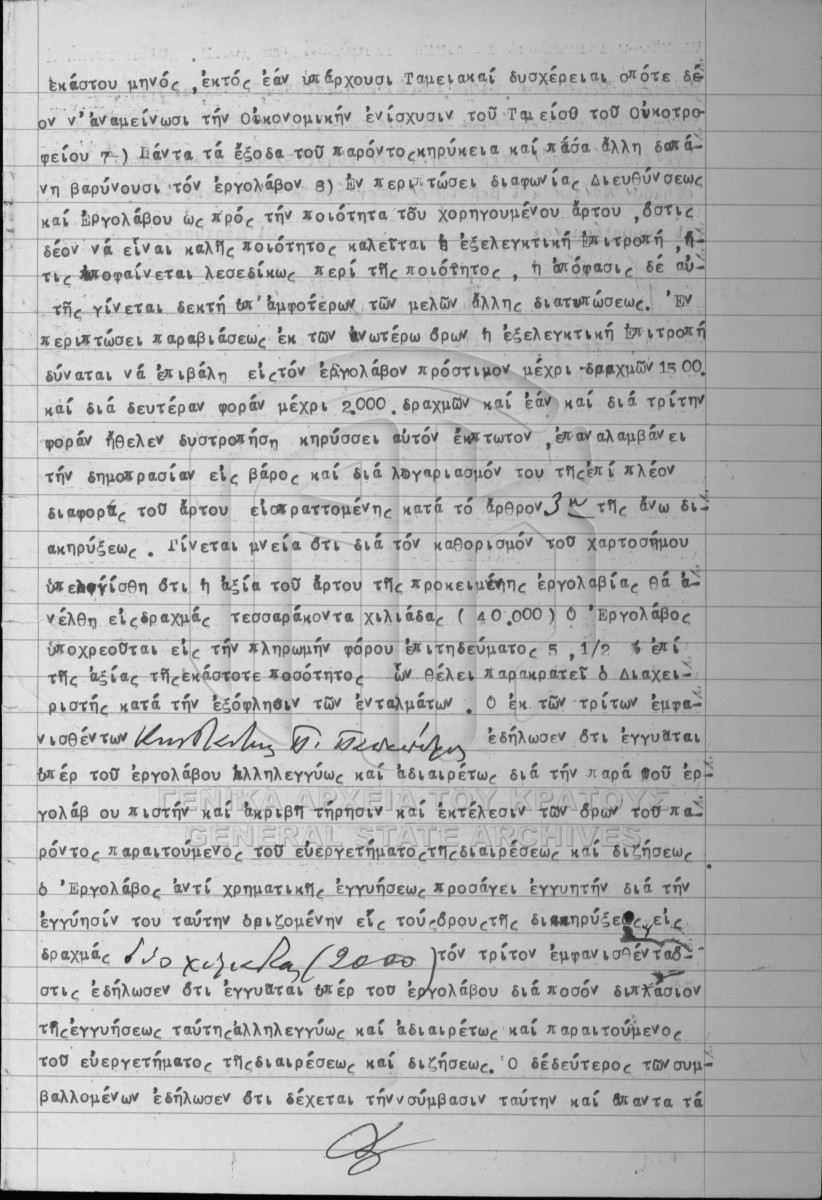 εκάστου μηνός ,έκτός έάν ύπάρχουσι Ταμειακαί δυσχέρειαι οπότε δέ-
ον ν'άναμείνωσι τήν Οικονομικήν ένίσχυσιν τοΰ Ταμείοθ τοΰ Οίκοτρο-
φείου 7 ) Πάντα τά έξοδα τοΰ παρόντοςκηρύκεια καί πάσα άλλη δαπά-
νη βαρύνουσι τόν έργολάβον 8) Εν περιπτώσει διαφωνίας Διευθύνσεως
καί Εργολάβου ώς πρός τήν ποιότητα τοΰ χορηγουμένου άρτου ,όστις
δέον νά είναι καλής ποιότητος καλείται ή έξελεγκτική Επιτροπή ,ή-
τις άποφαίνεται λεσεδίκως περί τής ποιότητος , ή άπόφασις δέ αύ-
τής γίνεται δεκτή ύπ'άμφοτέρων τών μελών άλλης διατυπώσεως. Έν
περιπτώσει παραβιάσεως έκ τών άνωτέρω όρων ή έξελεγκτική Επιτροπή
δύναται νά έπιβάλη είςτόν έργολάβον πρόστιμον μέχρι δραχμών 1500.
καί διά δευτέραν φοράν μέχρι 2.000.δραχμών καί έάν καί διά τρίτην
φοράν ήθελεν δυστροπήση κηρύσσει αύτόν έκπτωτον ,έπαναλαμβάνει
τήν δημοπρασίαν είς βάρος καί διά λογαριασμόν του τήςέπί πλέον
διαφοράς τοΰ άρτου είσπραττομένης κατά τό άρθρον 3 τής άνω δι-
ακηρύξεως . Γίνεται μνεία ότι διά τόν καθορισμόν τοΰ χαρτοσήμου
ύπελογίσθη ότι ή άξία τοΰ άρτου τής προκειμένης έργολαβίας θά ά-
νέλθη είςδραχμάς τεσσαράκοντα χιλιάδας ( 40.000) Ο Έργολάβος
ύποχρεοΰται είς τήν πληρωμήν φόρου έπιτηδεύματος 5 ,1/2 % έπί
τής άξίας τήςέκάστοτε ποσότητος ών θέλει παρακρατεί ό Διαχει-
ριστής κατά τήν έξόφλησιν τών ένταλμάτων . Ο έκ τών τρίτων έμφα-
νισθέντων Π. έδήλωσεν ότι έγγυάται
ύπέρ τοΰ έργολάβου άλληλεγγύως καί άδιαιρέτως διά τήν παρά τοΰ έρ-
γολάβ ου πιστήν καί άκριβή τήρησιν καί έκτέλεσιν τών όρων τοΰ πα-
ρόντος παραιτούμενος τοΰ εύεργετήματοςτήςδιαιρέσεως καί διζήσεως .
ό Έργολάβος άντί χρηματικής έγγυήσεως προσάγει έγγυητήν διά τήν
έγγύησίν του ταύτην όριζομένην είς τούςόρουςτής διακηρύξεως είς
δραχμάς δύο χιλιάδας (2000) τόν τρίτον έμφανισθένταό-
στις έδήλωσεν ότι έγγυάται ύπέρ τοΰ έργολάβου διά ποσόν διπλάσιον
τήςέγγυήσεως ταύτηςάλληλεγγύως καί άδιαιρέτως καί παραιτούμενος
τοΰ εύεργετήματος τήςδιαιρέσεως καί διζήσεως. Ο δέδεύτερος τώνσυμ-
βαλλομένων έδήλωσεν ότι δέχεται τήννσύμβασιν ταύτην καί άπαντα τά
ΓΕΝΙΚΑ ΑΡΧΕΙΑ ΤΟΥ ΚΡΑΤΟΥΣ
GENERAL STATE ARCHIVES